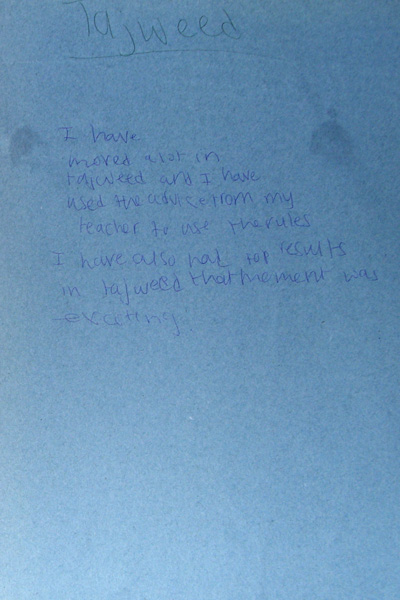 Tajweed
I have
moved alot in
tajweed and I have
used the advice from my
teacher to use the rules
I have also had top results
in tajweed that moment was
exciting.